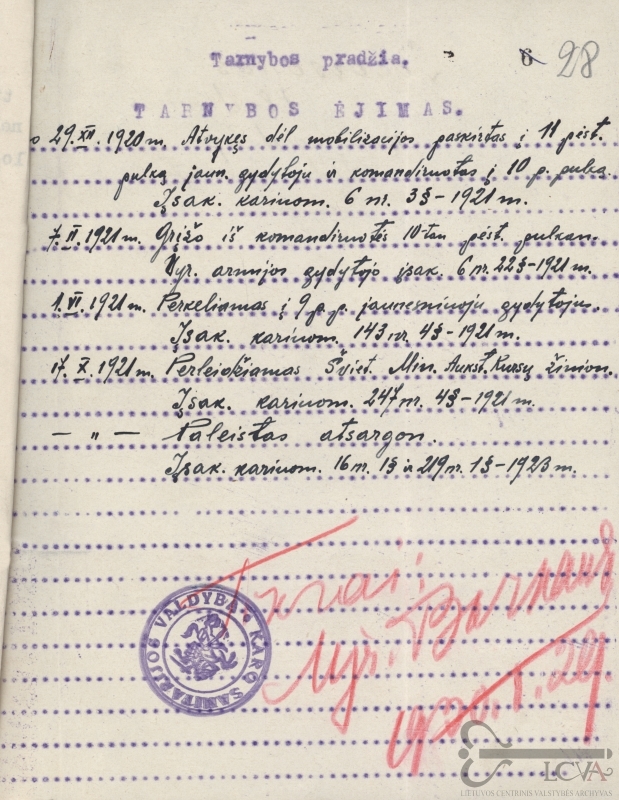 Tarnybos pradžia. 6 28
TARNYBOS ĖJIMAS.
29.XII.1920 m. Atvykęs dėl mobilizacijos paskirtas į 11 pėst.
pulką jaun. gydytoju ir komandiruotas į 10 p. pulką.
Įsak. kariuom. 6 nr. 3§-1921 m.
7.II.1921 m. Grįžo iš komandiruotės 10-tan pėst. pulkan.
Vyr. armijos gydytojo įsak. 6 nr. 22§-1921 m.
1.VI.1921 m. Perkeliamas į 9 p.p. jaunesniuoju gydytojus.
Įsak. kariuom. 143 nr. 4§-1921 m.
17.X.1921 m. Perleidžiamas Šviet. Min. Aukšt. Kursų žinion.
Įsak. kariuom. 247 nr. 4§-1921 m.
— „ — Paleistas atsargon.
Įsak. kariuom. 16 nr. 1§ ir 219 nr. 1§-1923 m.
KARO SANITARIJOS VALDYBA
LCVA
LIETUVOS CENTRINIS VALSTYBĖS ARCHYVAS